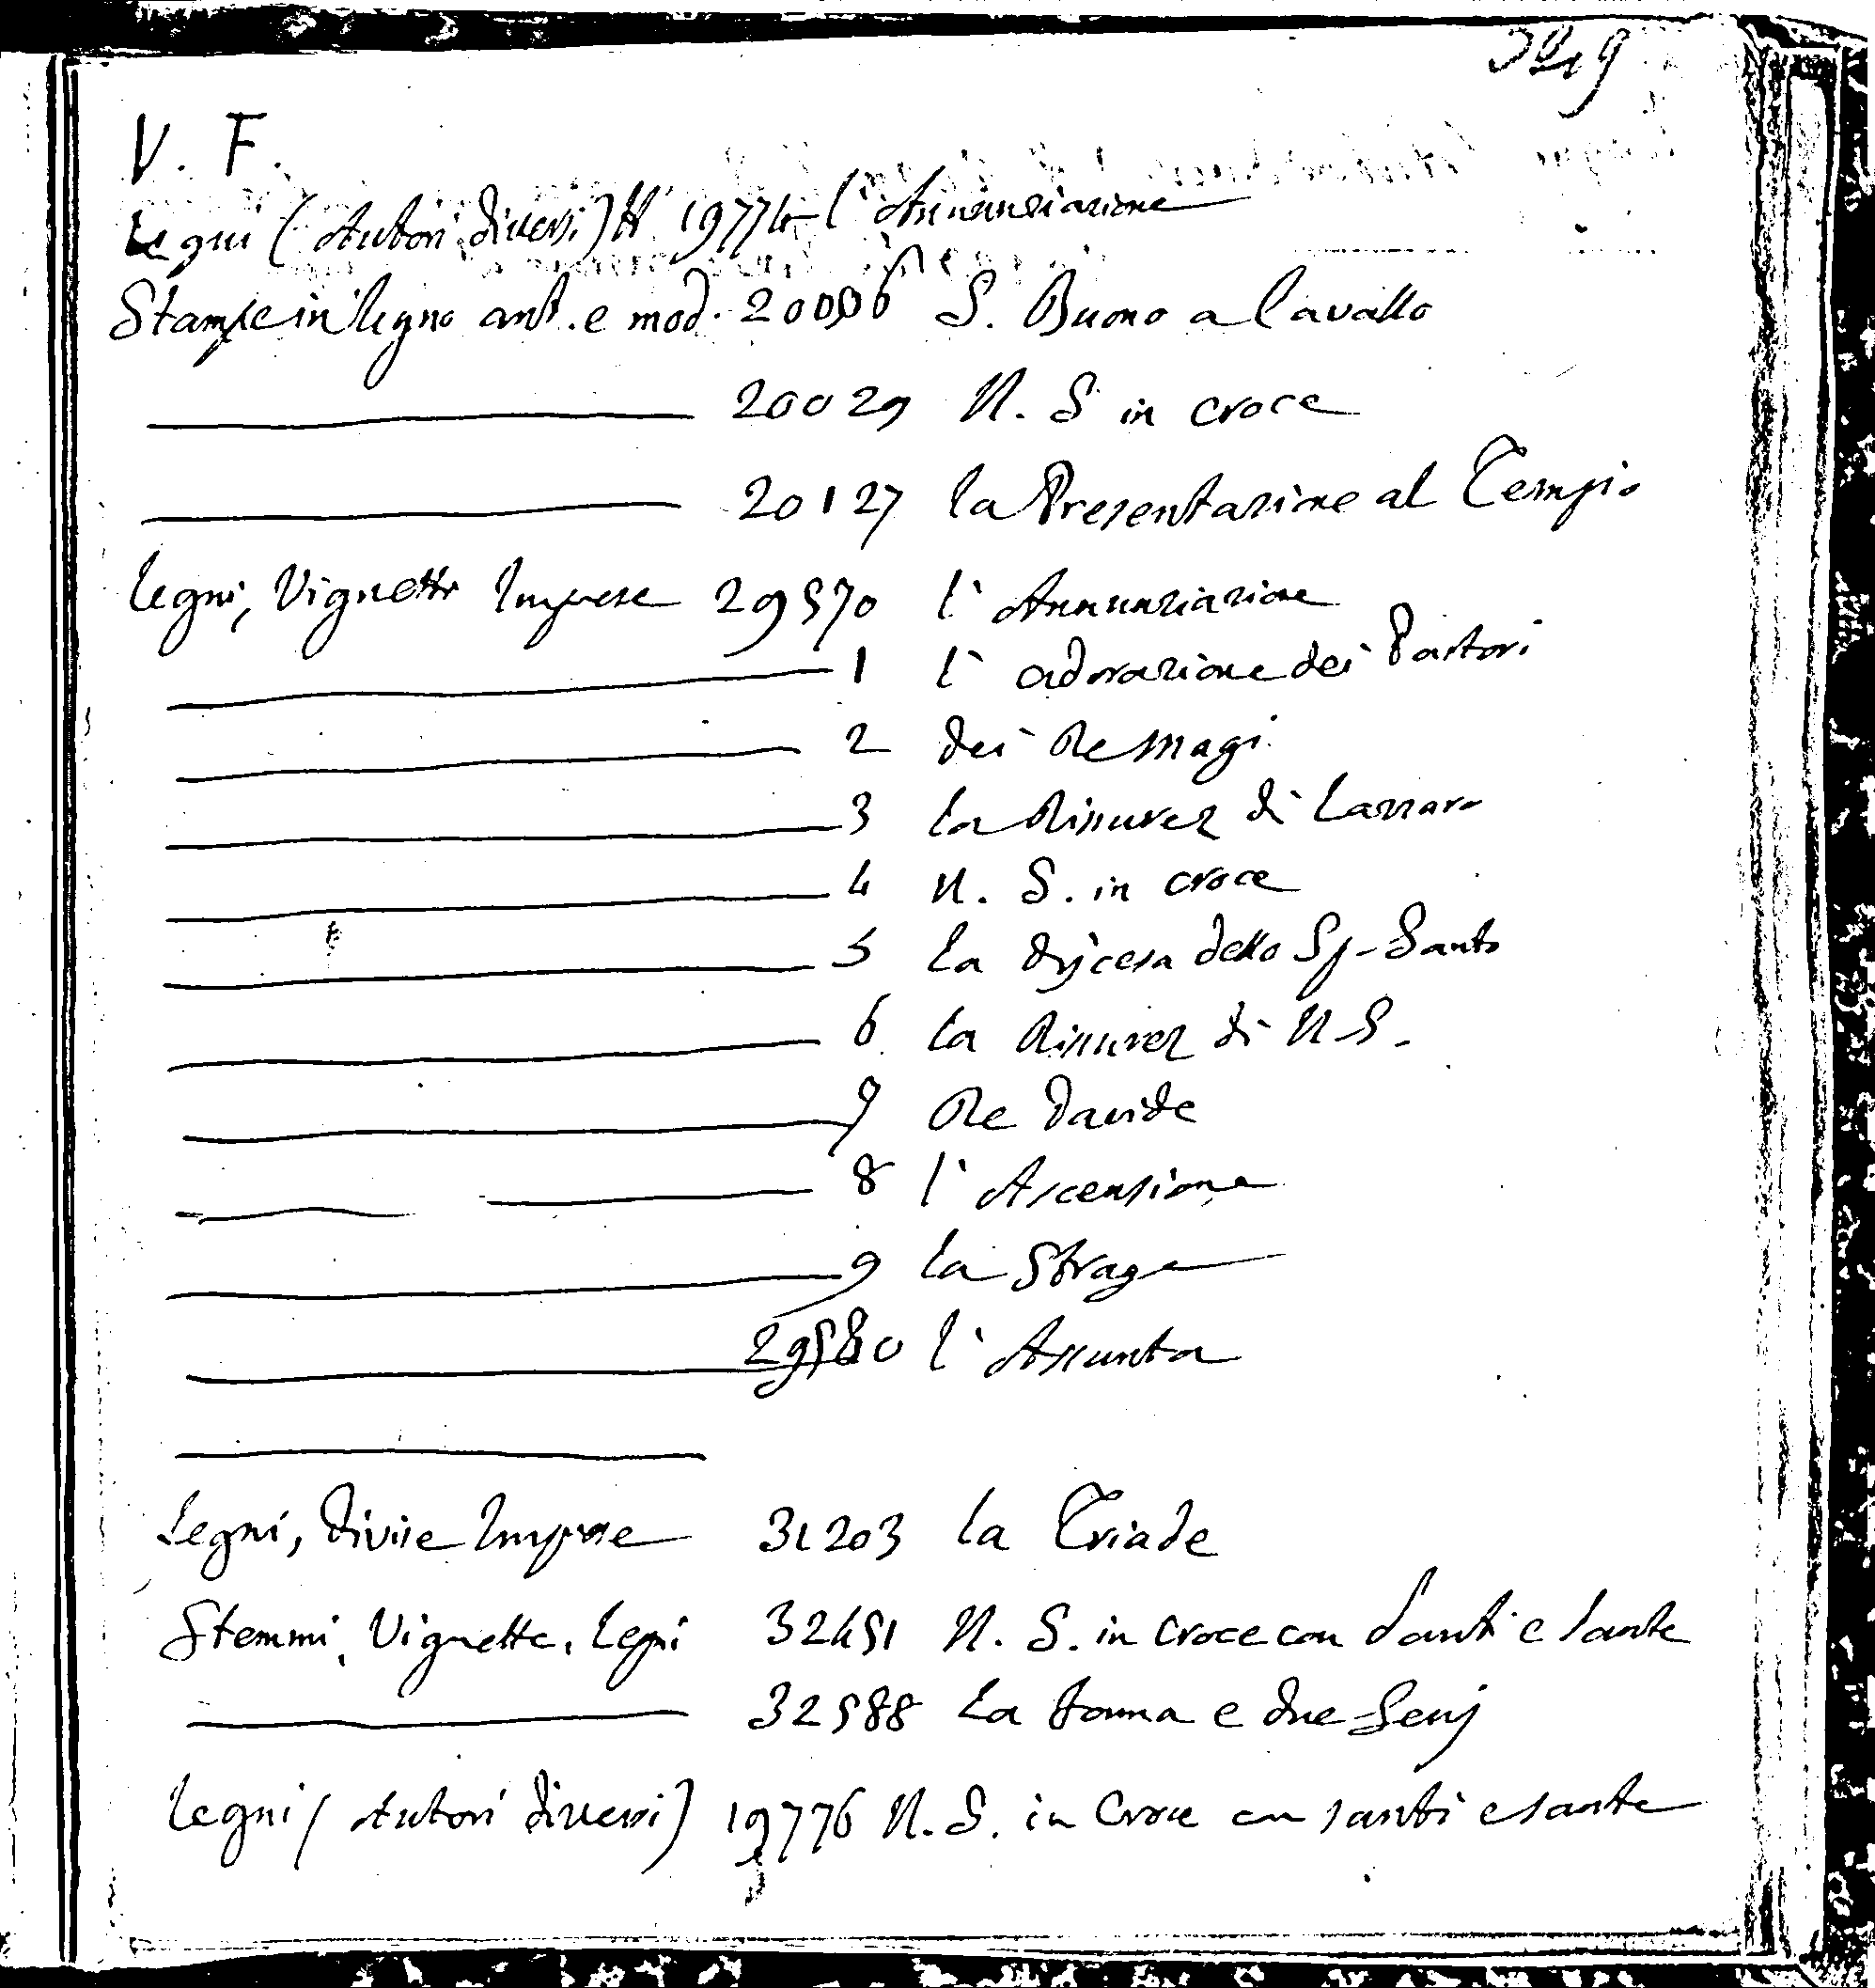 V. F.
Legni (Autori diversi) N 19774 l'Annunziazione
Stampe in legno ant. e mod. 20006 S. Buono a Cavallo
20029 N. S in croce
20127 la Presentazione al Tempio
Legni, Vignette Imprese 29570 l'Annunziazione
1 l'adorazione dei Pastori
2 dei Re Magi
3 la Risurrez di Lazzaro
4 N. S. in croce
5 la discesa dello Sp. Santo
6 la Risurrez di N S.
7 Re Davide
8 l'Ascensione
9 la Strage
29580 l'Assunta
Legni, Divise Imprese 31203 la Triade
Stemmi, Vignette, Legni 32451 N. S. in croce con Santi e Sante
32588 la Donna e due Genj
Legni (Autori diversi) 19776 N. S. in Croce con santi e sante